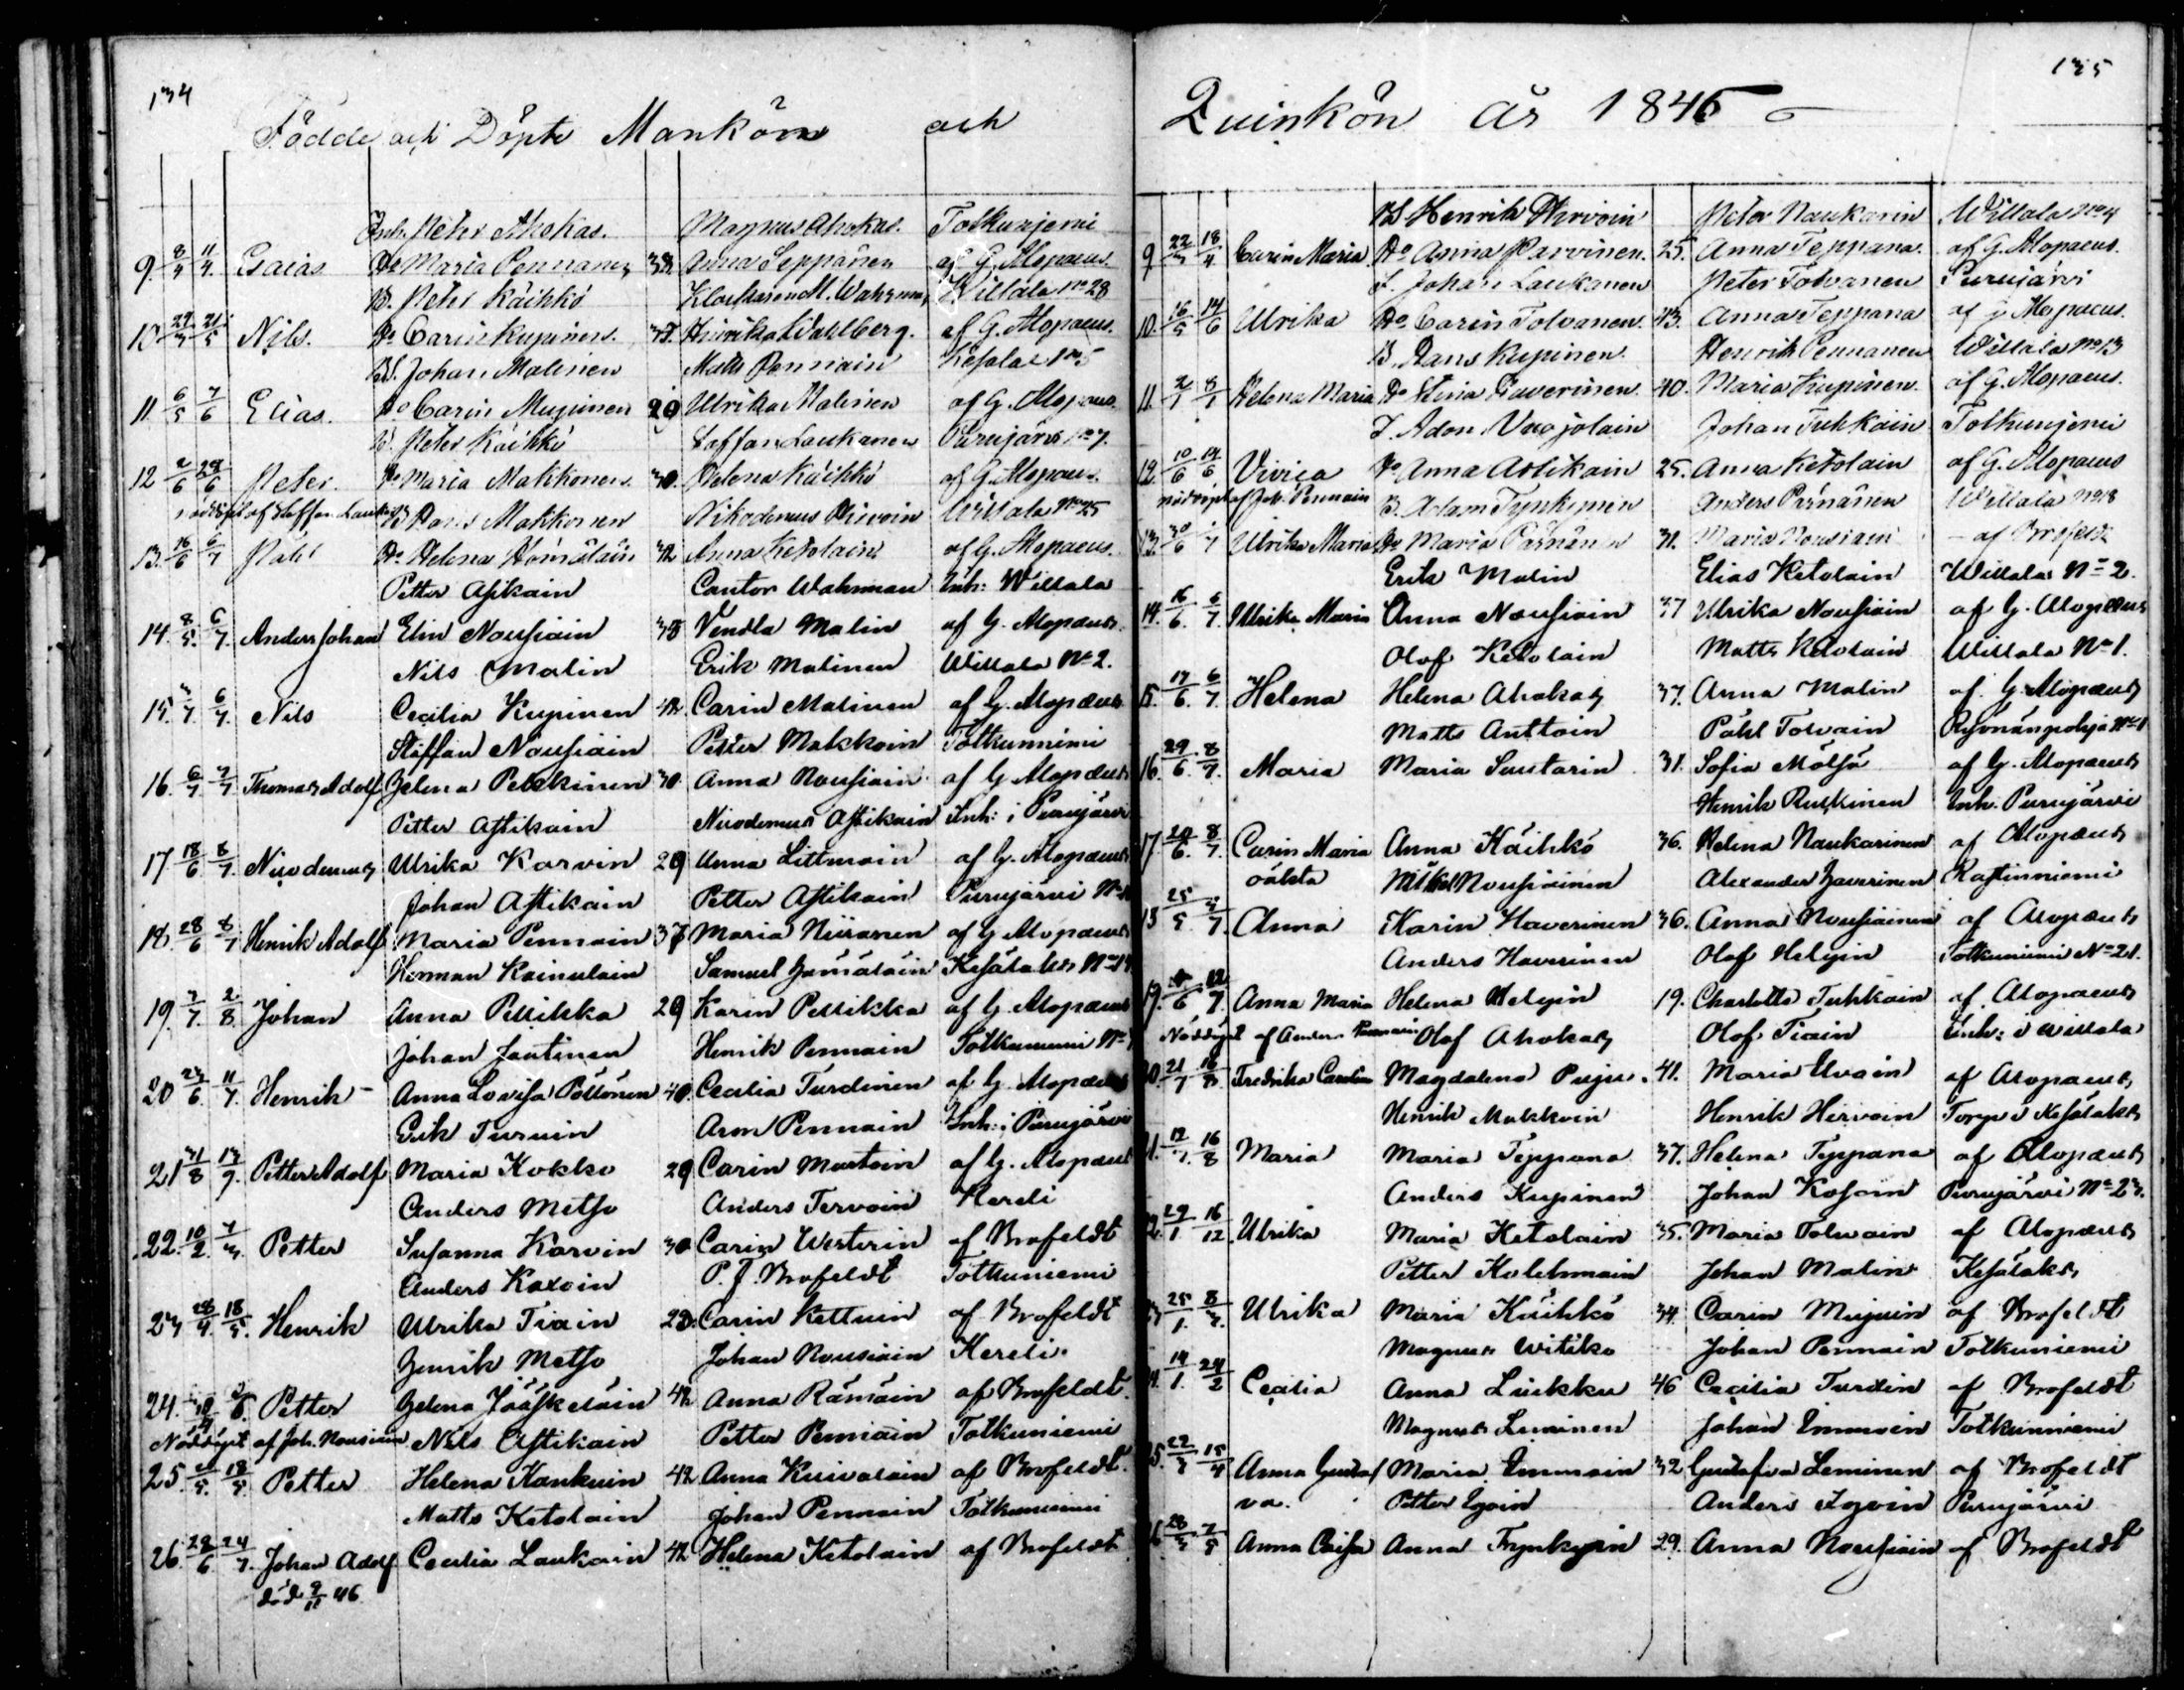 134
Födde och Döpte Mankön och
Inh. Peter Ahokas. Magnus Ahokas. Totkunjemi
9. 8/4 11/4. Esaias Ho Maria Pennanen 38. Anna Seppänen af G. Alopaeus.
B. Peter Käihkö Wahrman Willala no 28
10 29/3 21/5 Nils. Ho Carin Kupinen. Hinrika Wahlberg. af G. Alopaeus.
B. Johan Malinen Matts Pennain no 5
11. 6/5 7/6 Elias. Ho Carin Mujunen 29 Ulrika Malinen af G. Alopaeus
B. Peter Käihkö Staffan Laukanen Purujärvi no 7.
12 2/6 29/6 Peter. Ho Maria Makkonen. 30. Helena Käihkö af G. Alopaeus.
nöddöpt af Staffan B Hans Makkonen Nikodemus Hirvoin Willala no 25
13. 16/6 6/7 Påhl Ho Helena Hämäläin 32 Anna Ketolain af G. Alopaeus.
Petter Astikain Cantor Wahrman Inh: Willala
14. 8/5. 6/7. Anders Johan Elin Nousiain 38 Vendla Malin af G. Alopæus.
Nils Malin Erik Malinen Willala No 2.
15. 3/7. 6/7. Nils Cecilia Kupinen 42 Carin Malinen af G. Alopæus
Staffan Nousiain Petter Makkoin Totkunniemi
16. 6/7 7/7 Thomas Adolf Helena Pelkkinen 30 Anna Nousiain af G. Alopæus
Petter Astikain Nicodemus Astikain Inh: i Purujärvi
17 18/6 8/7. Nicodemus Ulrika Karvin 29 Anna Littmain af G. Alopæus
Johan Astikain Petter Astikain Purujärvi No
18. 28/6 8/7 Henrik Adolf Maria Pennain 37 Maria Niiranen af G. Alopæus
Herman Kainulain Samuel Hämäläin Kesälaks No 14
19. 7/7. 2/8. Johan Anna Pellikka 29 Karin Pellikka af G. Alopæus
Johan Jantinen Henrik Pennain Totkuniemi No
20 23/6. 11/7. Henrik - Anna Lovisa Pöllönen 40. Cecilia Turdinen af G. Alopæus
Erik Turuin Aron Pennain Inh: i Purujärvi
21 31/8 13/9. Petter Adolf Maria Kokko 29 Carin Mustoin af G. Alopæus
Anders Metso Anders Tervoin Kereli
22. 10/2. 7/3. Petter Susanna Karvin 30 Carin Westerin af Brofeldt
Anders Karvin P. J. Brofeldt Totkuniemi
23 28/4. 18/5. Henrik Ulrika Tiain 23. Carin Kettuin af Brofeldt
Henrik Metso Johan Nousiain Kereli.
24. Petter Helena Jääskeläin 42 Anna Rämäin af Brofeldt
Nöddöpt af Joh. Nousiain Nils Astikain Petter Pennain Totkuniemi
25 18/5 Petter Helena Kankuin 42 Anna Kuivalain af Brofeldt.
Matts Ketolain Johan Pennain Totkuniemi
26. 28/6. 24/7. Johan Adolf Cecilia Laukain 42 Helena Ketolain af Brofeldt
död 9/11 46
135
Quinkön år 1846
B. Henrik Hirvoin Peter Naukarin Willala no 4
9 22/3 18/4 Carin Maria Ho Anna Parvinen. 25. Anna Teppana. af G. Alopaeus.
I. Johan Laukanen Peter Tolvanen Purujärvi
10. 16/5 14/6 Ulrika Ho Carin Tolvanen. 43. Anna Teppana af G. Alopaeus.
B. Hans Kupinen. Henrik Pennanen Willala no 13
11. Helena Maria Ho Stina Haverinen. 40. Maria Kupinen. af G. Alopaeus.
I. Adam Johan Tuhkain Totkunjemi
12. 10/6 14/6 Viviea Ho Anna Astikain 25. Anna Ketolain af G. Alopaeus
nöddöpt af Joh. Pennain B. Adam Tynkkynen Anders Pärnänen Willala no 18
13. 30/6 Ulrika Maria Ho Maria Pärnänen 31. Maria Nousiain - af Brofeldt
Erik Malin Elias Ketolain Willala No 2.
14. 16/6. 6/7. Ulrika Maria Anna Nousiain 37 Ulrika Nousiain af G. Alopæus
Olof Ketolain Matts Ketolain Willala No 1.
15. 17/6. 6/7. Helena Helena Ahokas 37. Anna Malin af G. Alopæus
Matts Anttoin Påhl Tolvain No 1
16. 29/6. 8/7. Maria Maria Sustarin 31. Sofia Mölsä af G. Alopæus
Henrik Inh. Purujärvi
17 20/6. 8/7. Carin Maria Anna Käihkö 36. Helena Naukarinen af Alopæus
oäkta Mikel Nousiainen Alexander Haverinen Rastinniemi
18 25/5 Anna Karin Haverinen 36. Anna Nousiainen af Alopæus
Anders Haverinen Olof Helgin Totkuniemi No 21.
19. 12/7 Anna Maria Helena Helgin 19. Charlotta Tuhkain af Alopaeus
Nöddöpt af Anders Pennain Olof Ahokas Olof Tiain Inh: i Willala
20. 21/7 16/8 Fredrika Carolina Magdalena 41. Maria af Alopaeus
Henrik Makkoin Henrik Hirvoin Torp i Kesälaks
21. 12/7. 16/8 Maria Maria Teppana 37. Helena Teppana af Alopæus
Anders Kupinen Johan Kosoin Purujärvi No 23.
22. 29/1 16/12 Ulrika Maria Ketolain 35. Maria Tolvain af Alopæus
Petter Kolehmain Johan Malin Kesälaks
23 25/1. 8/3. Ulrika Maria Käihkö 34. Carin Mujuin af Brofeldt
Magnus Witikko Johan Pennain Totkuniemi
24. 14/1. 24/2 Cecilia Anna Liukku 46 Cecilia Turdin af Brofeldt
Magnus Leminen Johan Immoin Totkunniemi
25. 22/3 15/4 Anna Gustaf Maria Immoin 32 Gustafva Leminen af Brofeldt
va. Petter Egoin Anders Egoin Purujärvi
26 28/3 7/5 Anna Caisa Anna Tynkkyin 29. Anna Nousiain af Brofeldt